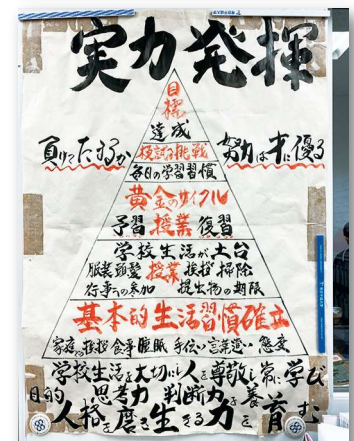 実力発揮
目標
達成
負けてたまるか
努力は才に優る
模試に挑戦
毎日の学習習慣
黄金のサイクル
予習 授業 復習
学校生活が土台
服装頭髪 授業 挨拶 掃除
行事への参加 提出物の期限
基本的生活習慣確立
家庭での挨拶 食事 睡眠 手伝い 言葉遣い 態度
学校生活を大切に人を尊敬し常に学び
目的 思考力 判断力を養
人格を磨き生きる力を育む